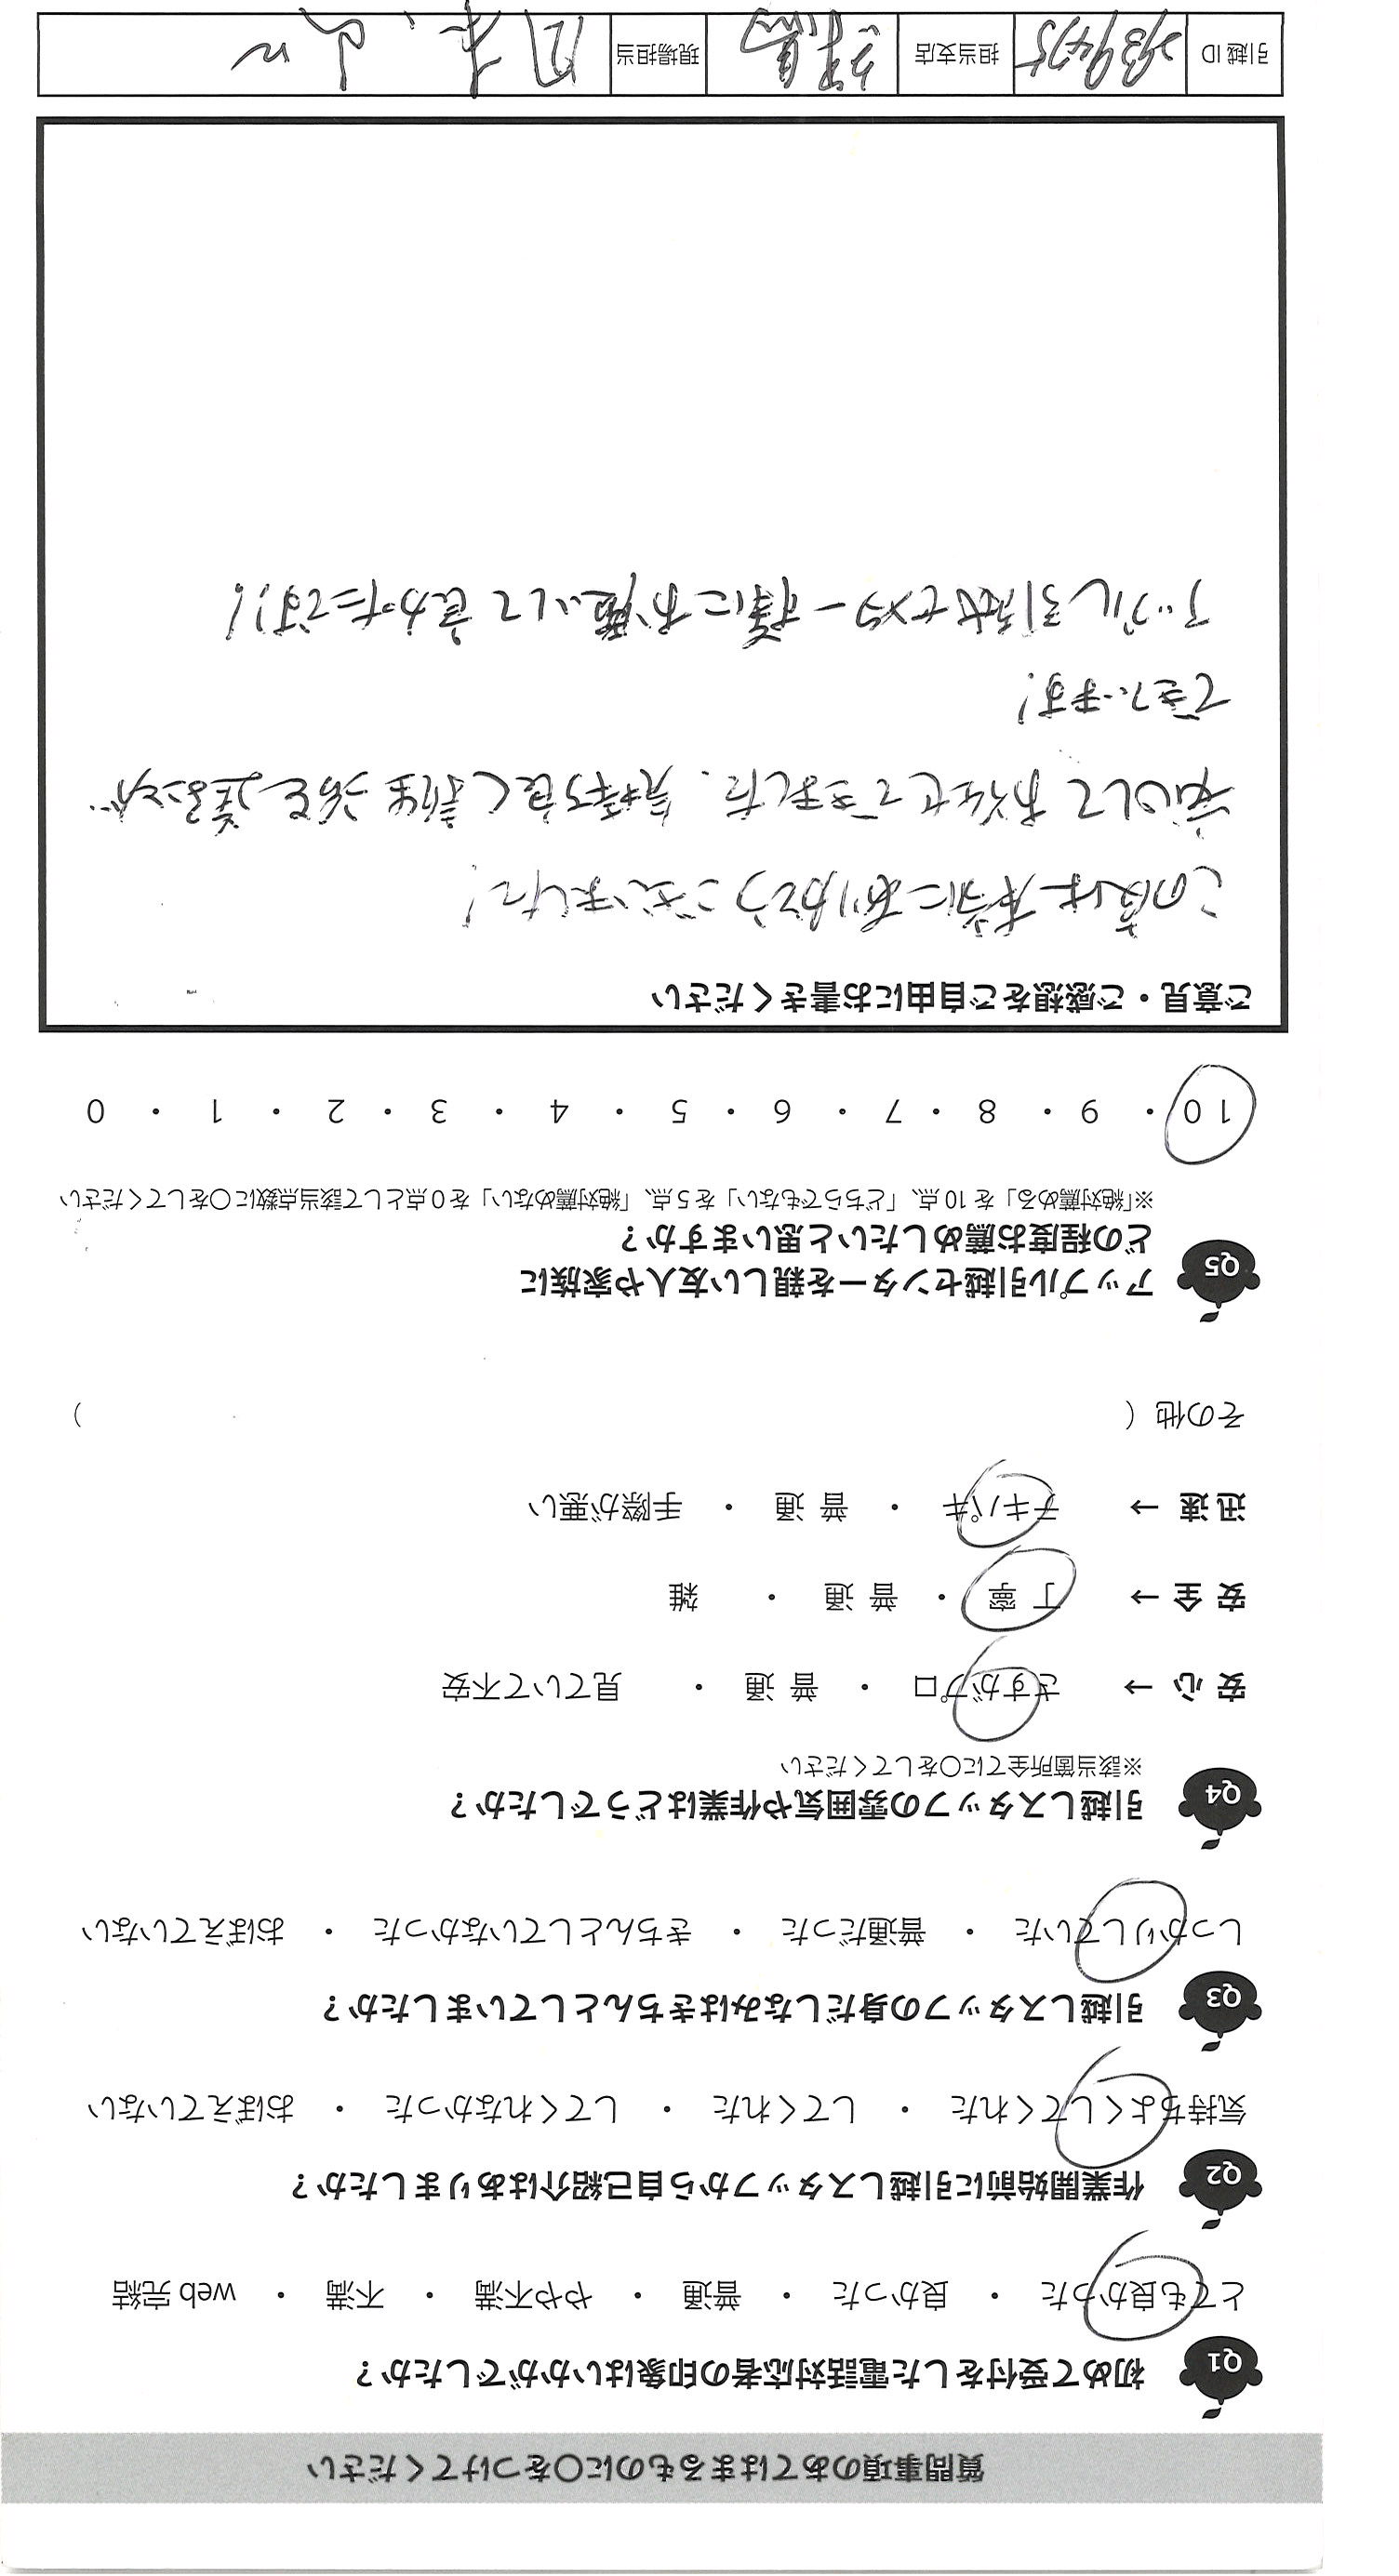 質問事項のあてはまるものに〇をつけてください
Q1 初めて受付をした電話対応者の印象はいかがでしたか？
とても良かった ・ 良かった ・ 普通 ・ やや不満 ・ 不満 ・ web 完結
Q2 作業開始前に引越しスタッフから自己紹介はありましたか？
気持ちよくしてくれた ・ してくれた ・ してくれなかった ・ おぼえていない
Q3 引越しスタッフの身だしなみはきちんとしていましたか？
しっかりしていた ・ 普通だった ・ きちんとしていなかった ・ おぼえていない
Q4 引越しスタッフの雰囲気や作業はどうでしたか？
※該当箇所全てに〇をしてください
安 心 → さすがプロ ・ 普 通 ・ 見ていて不安
安 全 → 丁 寧 ・ 普 通 ・ 雑
迅 速 → テキパキ ・ 普 通 ・ 手際が悪い
その他（ ）
Q5 アップル引越センターを親しい友人や家族に
どの程度お薦めしたいと思いますか？
※「絶対薦める」を 10 点、「どちらでもない」を 5 点、「絶対薦めない」を 0 点として該当点数に〇をしてください
10 ・ 9 ・ 8 ・ 7 ・ 6 ・ 5 ・ 4 ・ 3 ・ 2 ・ 1 ・ 0
ご意見・ご感想をご自由にお書きください
この度は本当にありがとうございました!
安心してお任せできました。気持ち良く新生活を送ることが
できています!
アップル引越センター様にお願いして良かったです!!
引越 ID 担当支店 練馬 現場担当